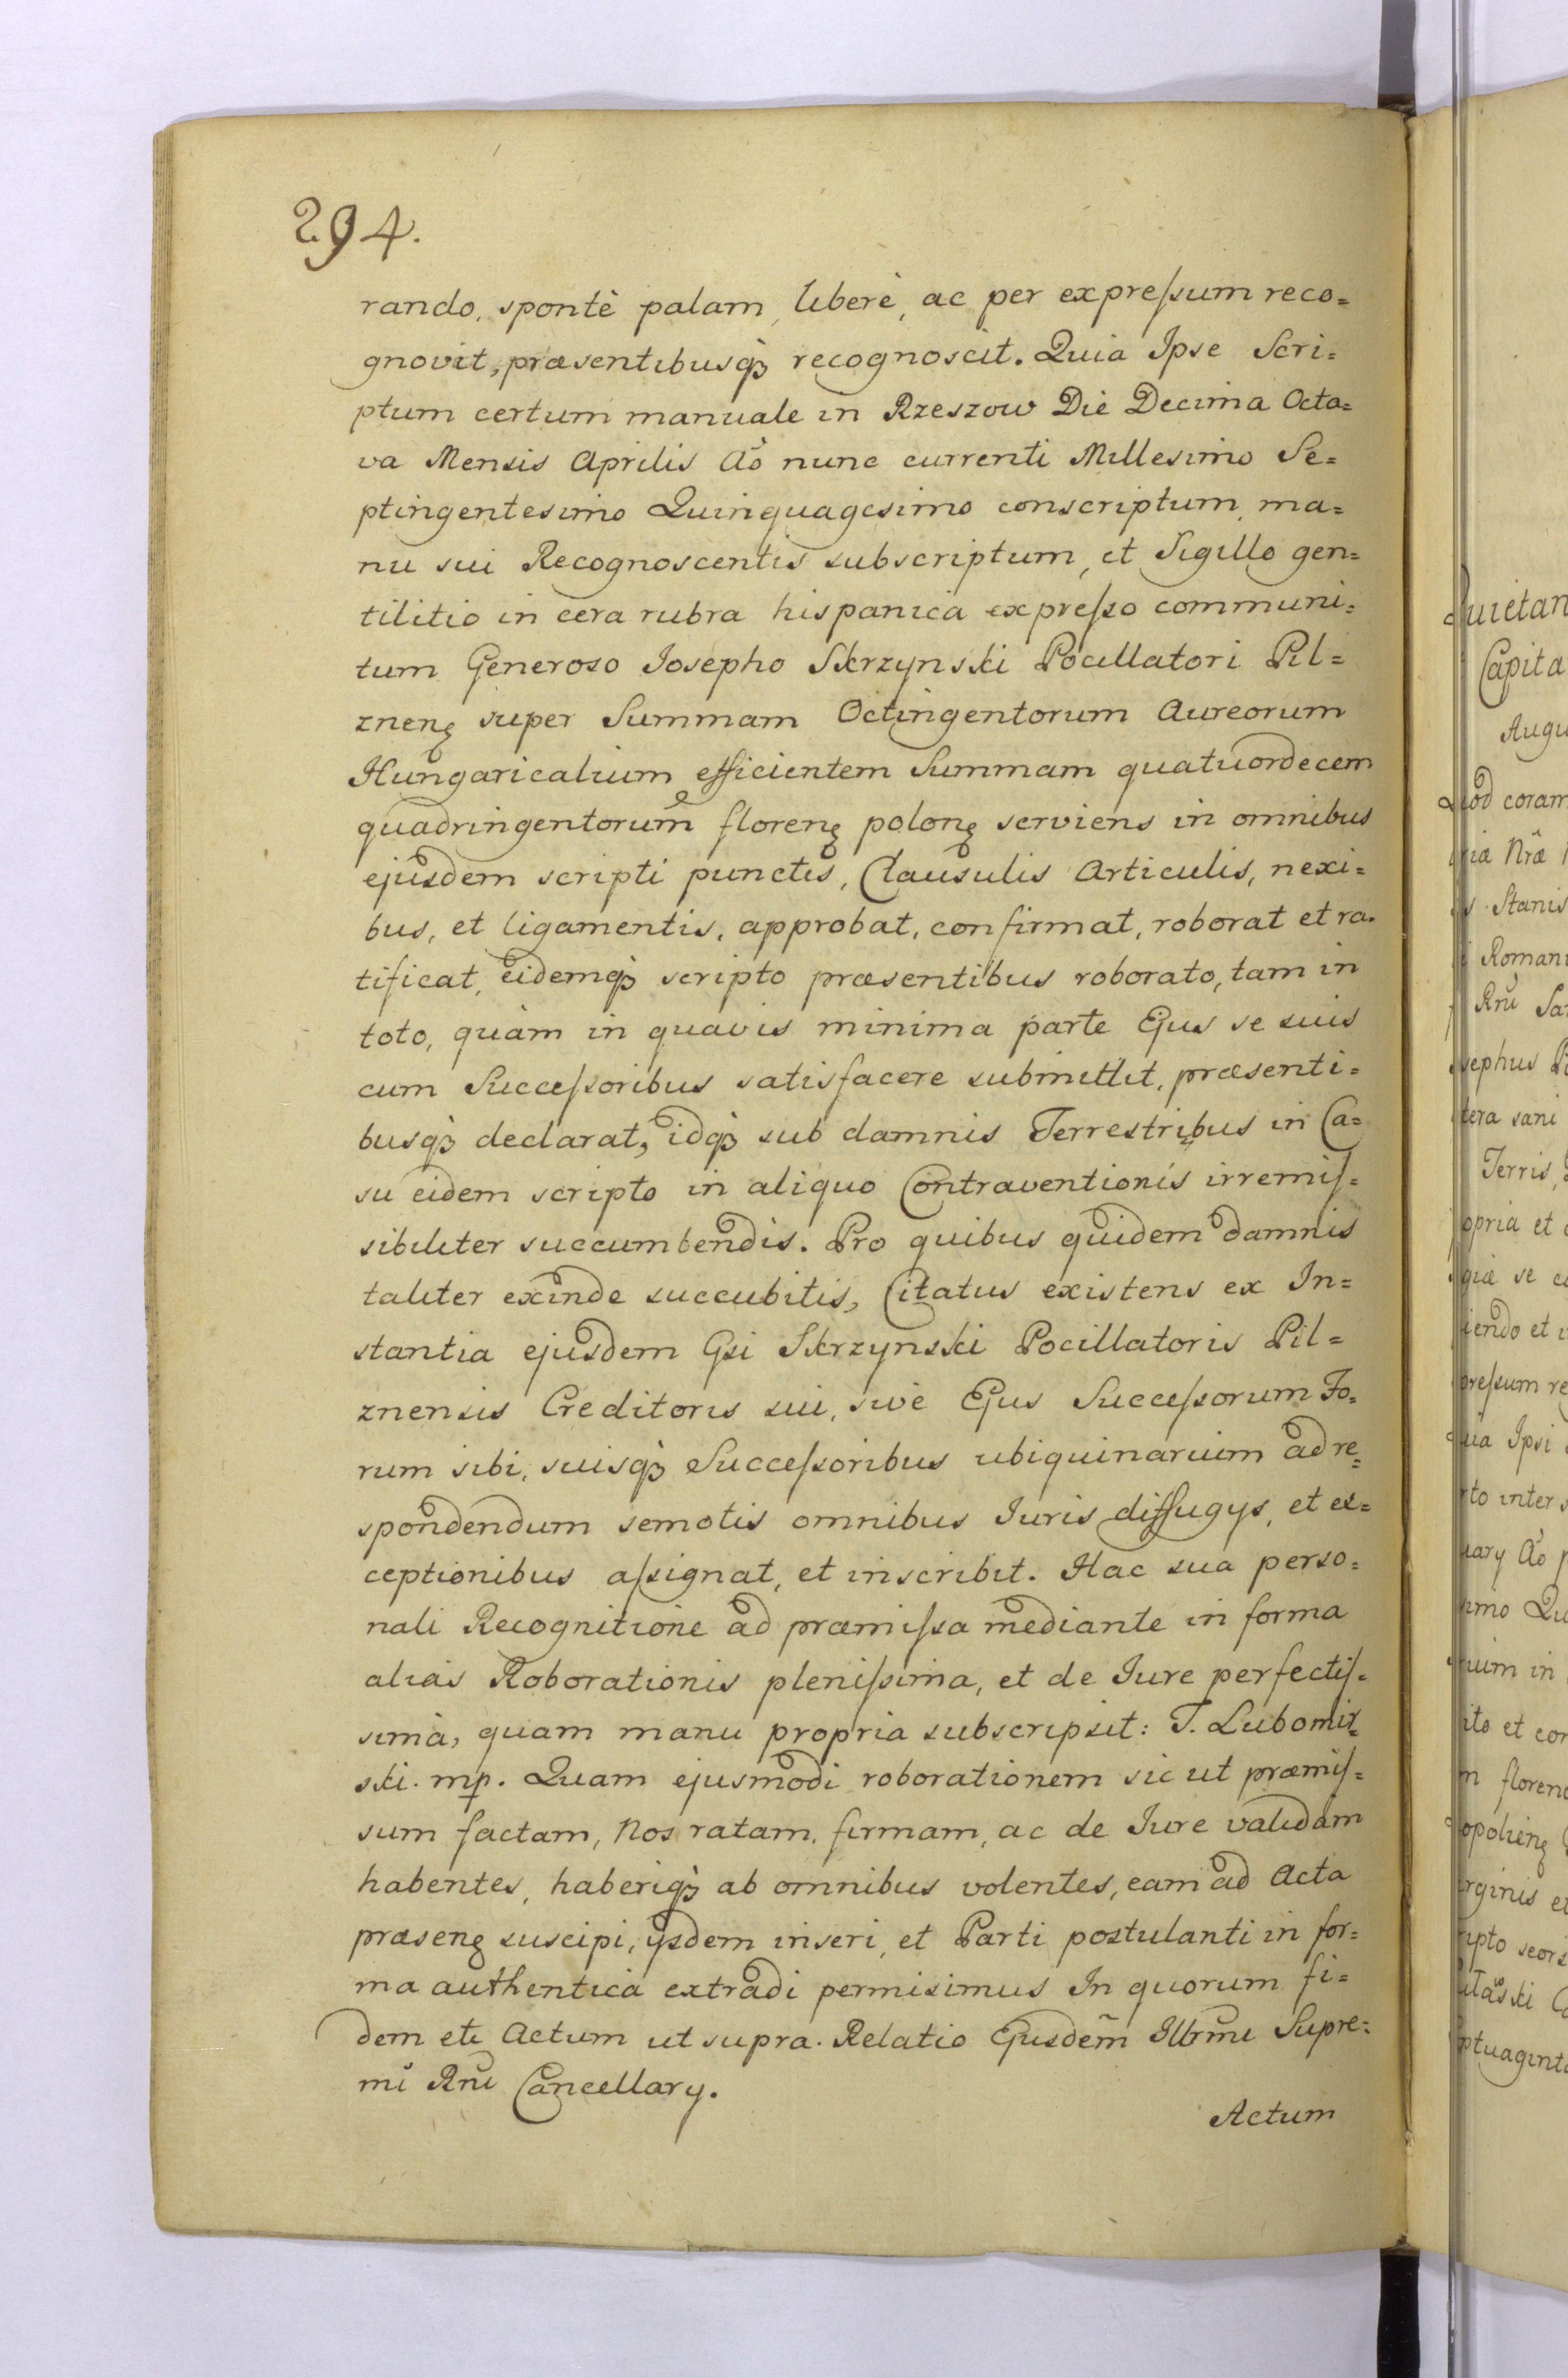 294.
rando, spontè palam, liberè, ac per expreſsum reco=
gnovit, præsentibusqꝫ recognoscit. Quia Ipse Scri=
ptum certum manuale in Rzeszow Die Decima Octa=
va Mensis Aprilis Aõ nunc currenti Millesimo Se=
ptingentesimo Quinquagesimo conscriptum, ma=
nu sui Recognoscentis subscriptum, et Sigillo gen=
tilitio in cera rubra hispanica expreſso communi=
tum Generoso Iosepho Skrzynski Pocillatori Pil=
zneñ super Summam Octingentorum Aureorum
Hungaricalium efficientem Summam quatuordecem
quadringentorum̃ floreñ poloñ serviens in omnibus
ejusdem scripti punctis, Clausulis Articulis, nexi=
bus, et ligamentis, approbat, confirmat, roborat et ra=
tificat, eidemqꝫ scripto præsentibus roborato, tam in
toto, quàm in quavis minima parte Ejus se suis
cum Succeſsoribus satisfacere submittit, præsenti=
busqꝫ declarat, idqꝫ sub damnis Terrestribus in Ca=
su eidem scripto in aliquo Contraventionis irremiſ=
sibiliter succumbendis. Pro quibus quidem damnis
taliter exinde succubitis, Citatus existens ex In=
stantia ejusdem Gsi Skrzynski Pocillatoris Pil=
znensis Creditoris sui, sive Ejus Succeſsorum Fo=
rum sibi, suisqꝫ Succeſsoribus ubiquinarium ad re=
spondendum semotis omnibus Iuris diffugys, et ex=
ceptionibus aſsignat, et inscribit. Hac sua perso=
nali Recognitione ad præmiſsa mediante in forma
alias Roborationis pleniſsima, et de Iure perfectiſ=
simà, quam manu propria subscripsit: T. Lubomir=
ski. mp. Quam ejusmodi roborationem sic ut præmiſ=
sum factam, Nos ratam, firmam, ac de Iure validam
habentes, haberiqꝫ ab omnibus volentes, eam ad Acta
præseñ suscipi, ysdem inseri, et Parti postulanti in for=
ma authentica extradi permisimus In quorum fi=
dem etc Actum ut supra. Relatio Ejusdem̃ Illrmi Supre=
mi Rnĩ Cancellary.
Actum
Capita
Augu
coram
Stanis
Romani
Terris,
et
Ipsi
inter
in
et